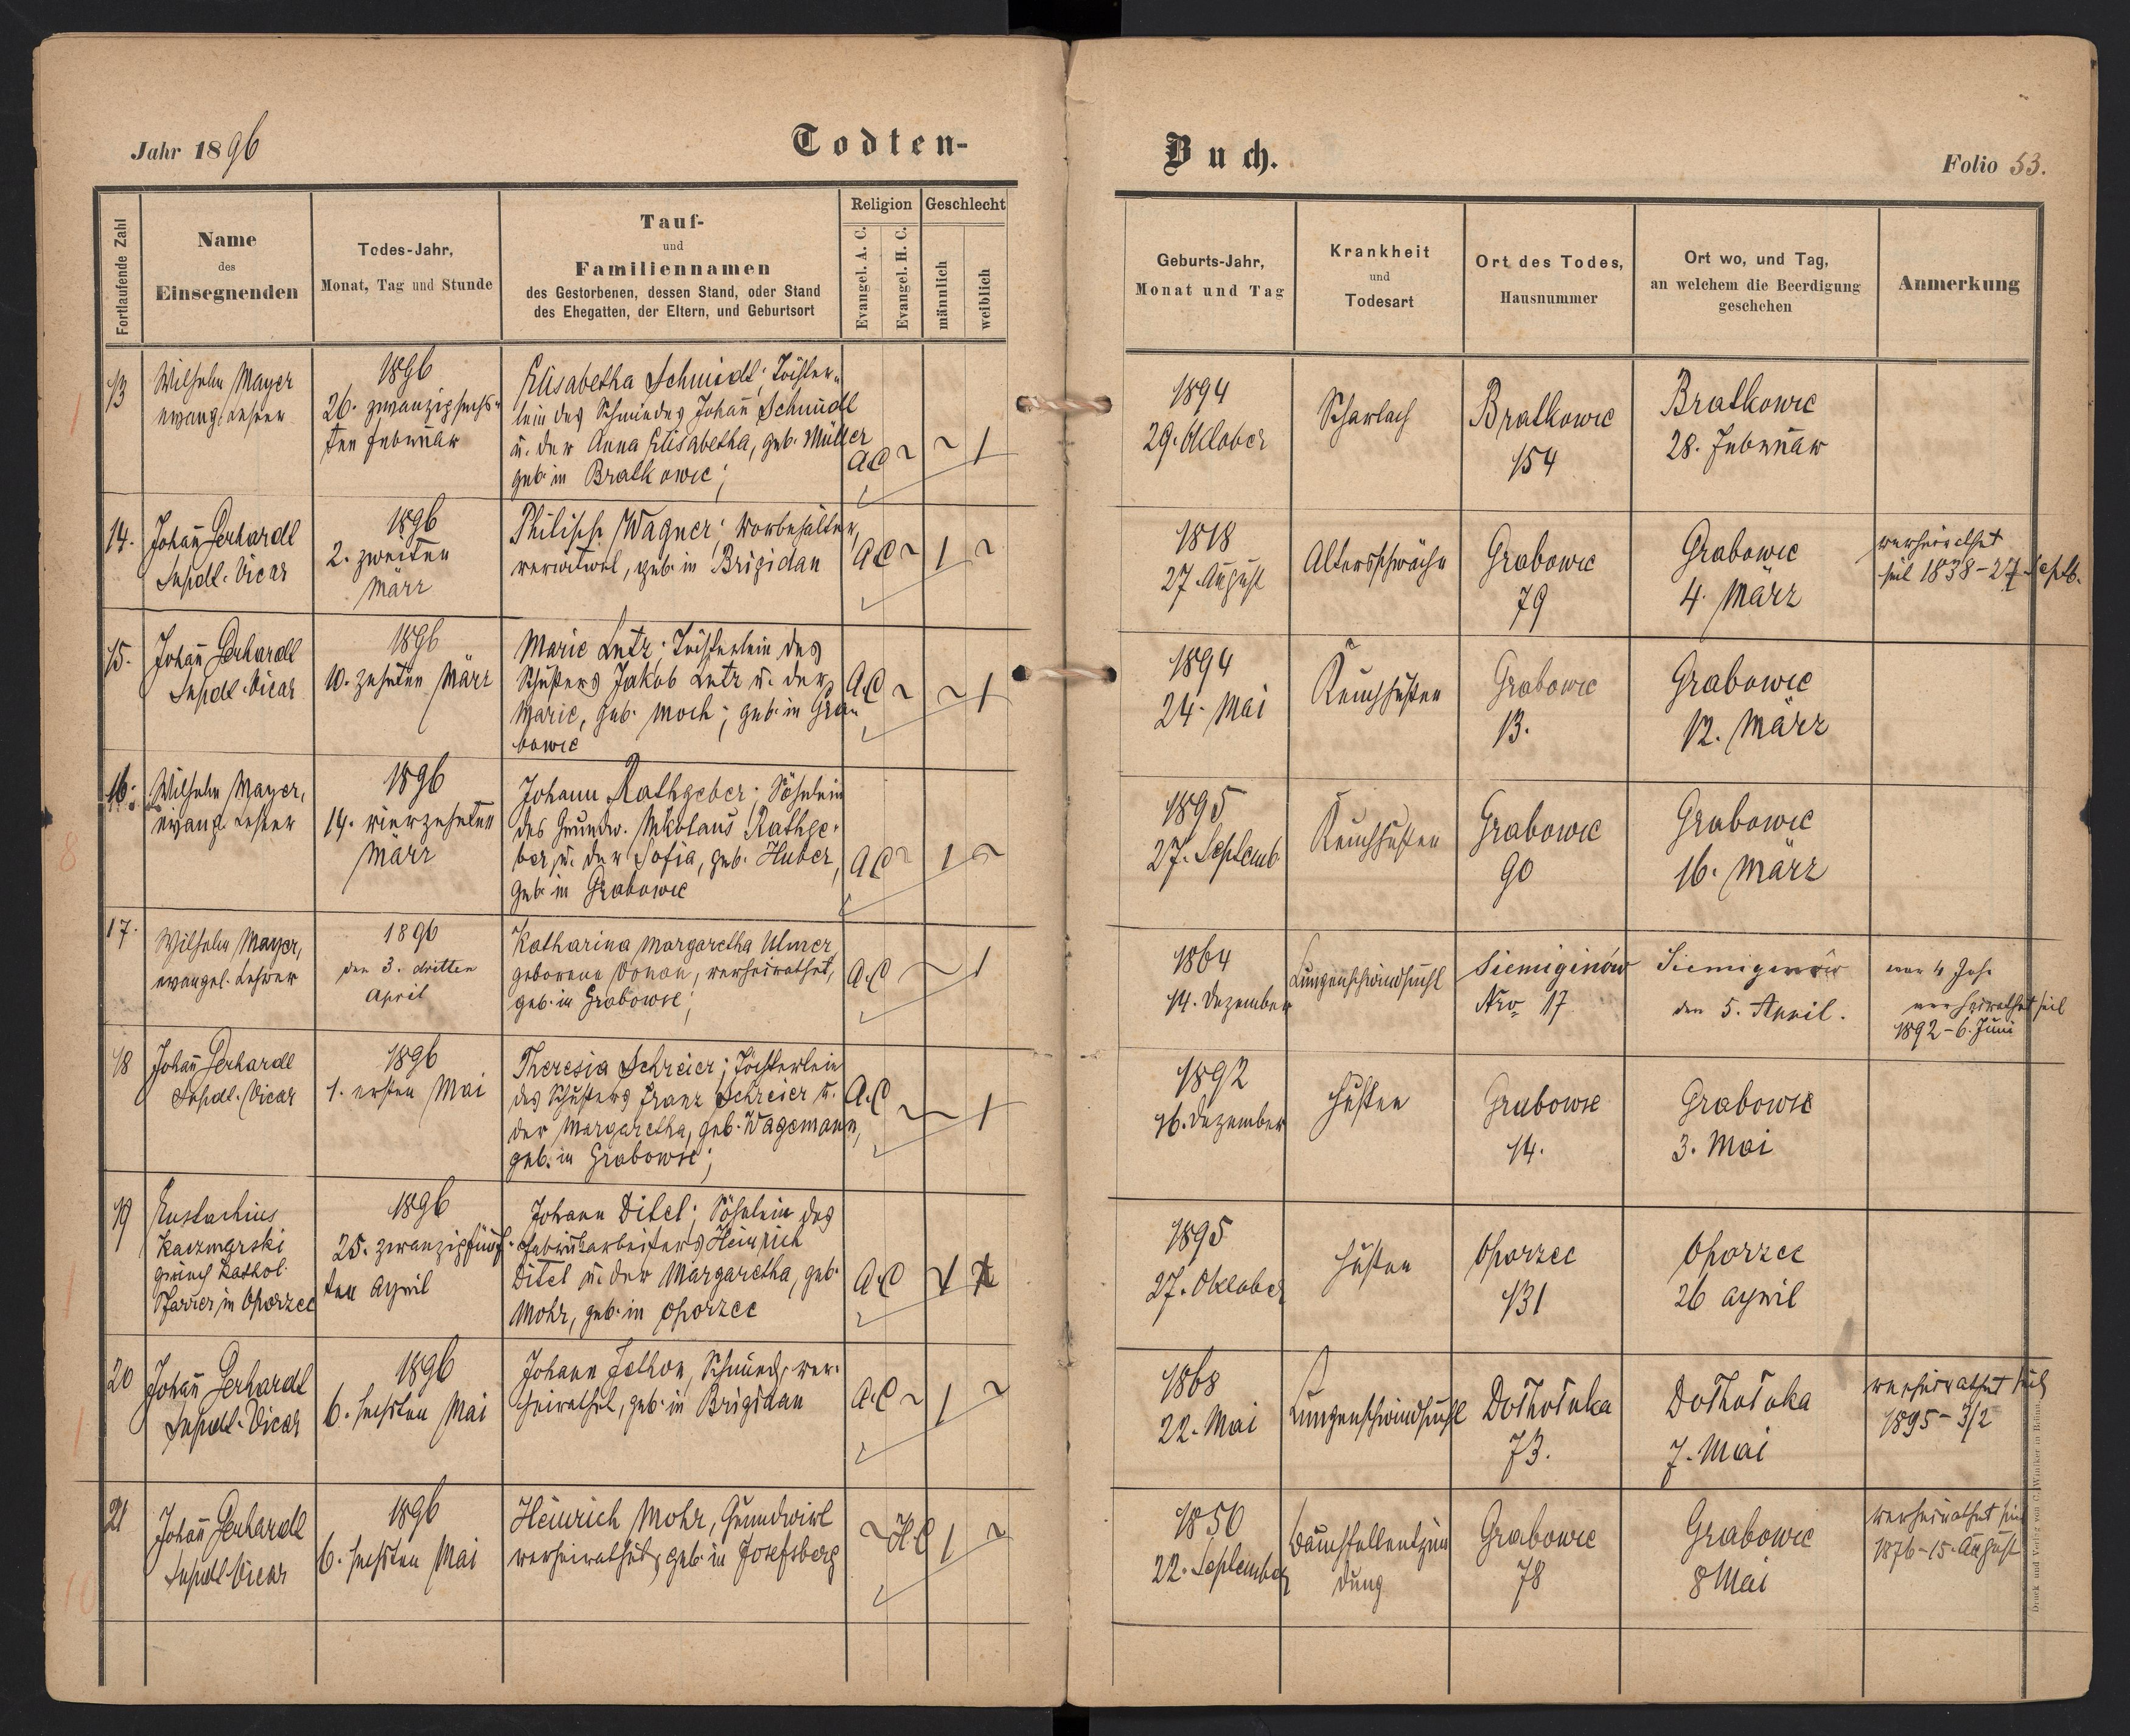 Jahr 1896
Todten-
Buch.
Folio 53.
Fortlaufende Zahl
Name
des
Einsegnenden
Todes-Jahr,
Monat, Tag und Stunde
Tauf-
und
Familiennamen
des Gestorbenen, dessen Stand, oder Stand
des Ehegatten, der Eltern, und Geburtsort
Religion
Evangel. A. C.
Evangel. H. C.
Geschlecht
männlich
weiblich
Geburts-Jahr,
Monat und Tag
Krankheit
und
Todesart
Ort des Todes,
Hausnummer
Ort wo, und Tag,
an welchem die Beerdigung
geschehen
Anmerkung
13
Wilhelm Mayer
evang. Lehrer
1896
26. zwanzigsechs-
ten Februar
Elisabetha Schmidt; Töchter-
lein des Schmiedes Johañ Schmidt
u. der Anna Elisabetha, geb. Müller
geb. in Bratkowic;
A.C ~ ~ 1
1894
29. Oktober
Scharlach
Bratkowic
154
Bratkowic
28. Februar
14.
Johañ Gerhardt
Supdt. Vicar
1896
2. zweiten
März
Philipp Wagner; Vorbehälter,
verwitwet, geb. in Brigidau
A.C ~ 1 ~
1818
27. August
Altersschwäche
Grabowic
79
Grabowic
4. März
verheirathet
seit 1838 - 27. Septb.
15.
Johañ Gerhardt
Supdt. Vicar
1896
10. zehnten März
Marie Lutz; Töchterlein des
Schusters Jakob Lutz u. der
Marie, geb. Moch; geb. in Gra-
bowic
A.C ~ ~ 1
1894
24. Mai
Keuchhusten
Grabowic
13.
Grabowic
12. März
16.
Wilhelm Mayer,
evang. Lehrer
1896
14. vierzehnten
März
Johann Rathgeber; Söhnlein
des Grundw. Nikolaus Rathge-
ber, u. der Sofia, geb. Huber,
geb. in Grabowic
A.C ~ 1 ~
1895
27. Septemb
Keuchhusten
Grabowic
90
Grabowic
16. März
17.
Wilhelm Mayer,
evangel. Lehrer
1896
den 3. dritten
April
Katharina Margaretha Ulmer
geborene Vonau, verheirathet,
geb. in Grabowic;
A.C ~ 1
1864
14. Dezember
Lungenschwindsucht
Siemiginów
Nro 17
Siemiginów
den 5. April.
war 4 Jahr
verheirathet seit
1892 - 6. Juni
18
Johañ Gerhardt
Supdt. Vicar
1896
1. ersten Mai
Theresia Schreier; Töchterlein
des Schusters Franz Schreier u.
der Margaretha, geb. Wagemann,
geb. in Grabowic;
A.C ~ ~ 1
1892
16. Dezember
Husten
Grabowic
14.
Grabowic
3. Mai
19
Eustachius
Kaczmarski
griech. kathol.
Pfarrer in Oporzec
1896
25. zwanzigfünf-
ten April
Johann Ditel; Söhnlein des
Fabriksarbeiters Heinrich
Ditel u. der Margaretha, geb.
Mohr, geb. in Oporzec
A.C 1
1895
27. Oktober
Husten
Oporzec
131
Oporzec
26 April
20
Johañ Gerhardt
Supdt. Vicar
1896
6. sechsten Mai
Johann Schmied, ver-
heirathet, geb. in Brigidau
A.C ~ 1 ~
1868
22. Mai
Lungenschwindsucht
Dolhołuka
73.
Dolhołuka
7. Mai
verheirathet seit
1895 - 3/2
21
Johañ Gerhardt
Supdt. Vicar
1896
6. sechsten Mai
Heinrich Mohr, Grundwirt
verheirathet, geb. in Josefsberg
~ H.C 1 ~
1850
22. September
Bauchfellentzün
dung
Grabowic
78
Grabowic
8 Mai
verheirathet seit
1876 - 15. August
Druck und Verlag von C. Winiker in Brünn.